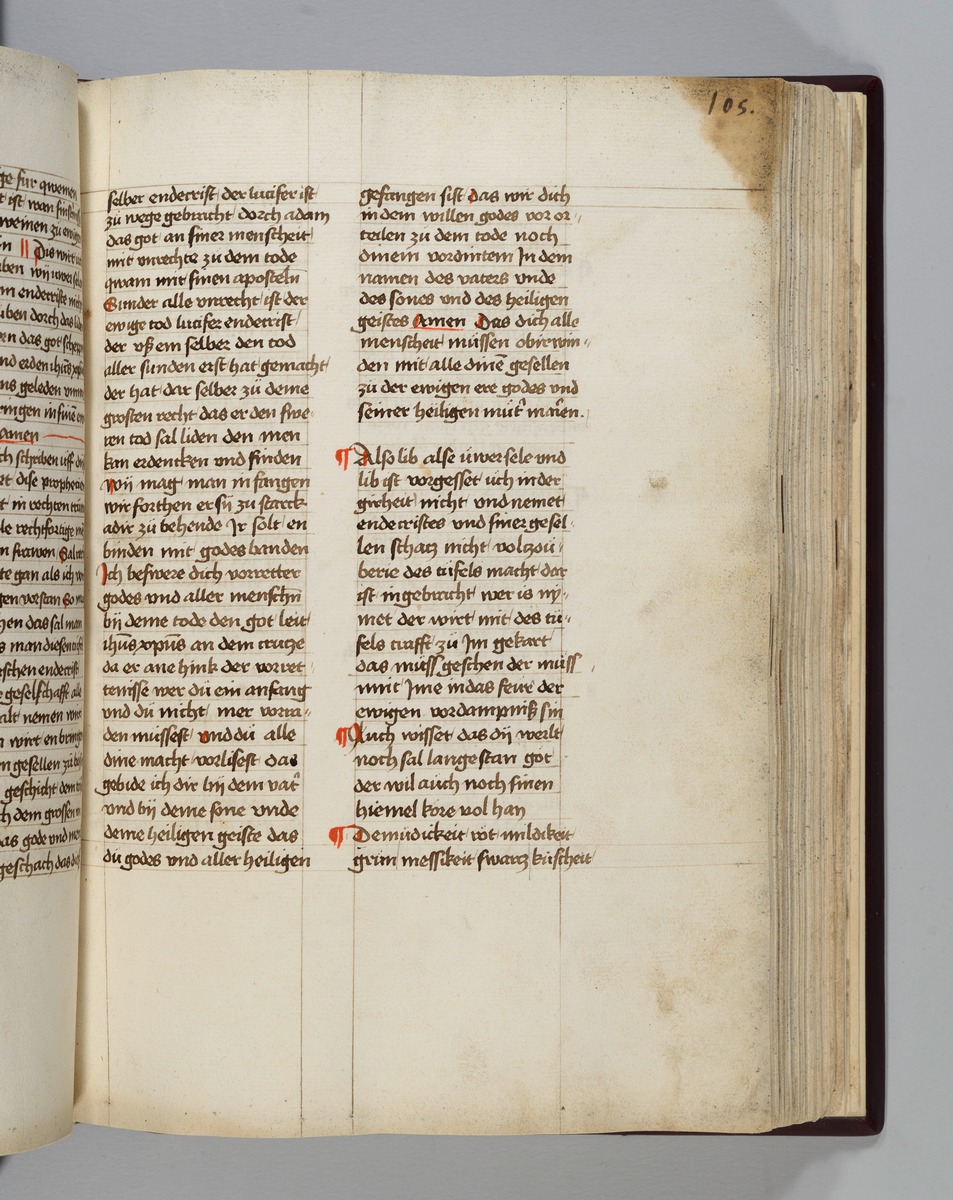 105.
selber endecrist der lucifer ist
zü wege gebracht dorch adam
das got an siner menscheit
mit vnrechte zu dem tode
qwam mit sinen aposteln
Sunder alle vnrecht ist der
ewige tod lucifer endecrist
der vß em selber den tod
aller sunden erst hat gemacht
der hat dar selber zü deme
grosten recht das er den swe
ren tod sal liden den men
kan erdencken vnd finden
Wij mag man in fangen
wir forchen er sij zu starck
adir zü behende Ir solt en
binden mit godes banden
Ich beswere dich vorretter
godes vnd aller menschñ
bij deme tode den got leit
ihūs xp̄us an dem crucze
da er ane hink der vorret
tenisse wer dü ein anfang
vnd dü nicht mer vorra
den müssest vnd dü alle
dine macht vorlisest das
gebide ich dir bij dem vat̄
vnd bij deme sone vnde
deme heiligen geiste das
dü godes vnd aller heiligen
gefangen sist das wir dich
in dem willen godes vor or
teilen zü dem tode noch
dinem vordintem In dem
namen des vaters vnde
des sones vnd des heiligen
geistes Amen Das dich alle
menscheit müssen obirwin
den mit alle dinē gesellen
zü der ewigen ere godes vnd
seiner heiligen müt̄ marien.
¶ Also lib alse üwer sele vnd
lib ist vorgesset üch in der
gircheit nicht vnd nemet
endecristes vnd siner gesel
len schacz nicht vol czöü
berie des tüfels macht dar
ist in gebracht wer is ny
met der wirt mit des tü
fels crafft zü Im gekart
das müss geschen der müss
mit Ime in das feür der
ewigen vordampniß sin
¶ Auch wisset das dij werlt
noch sal lange stan got
der wil auch noch sinen
hiemel kore vol han
¶ Demüdickeit rot mildikeit
grün messikeit swarcz küscheit